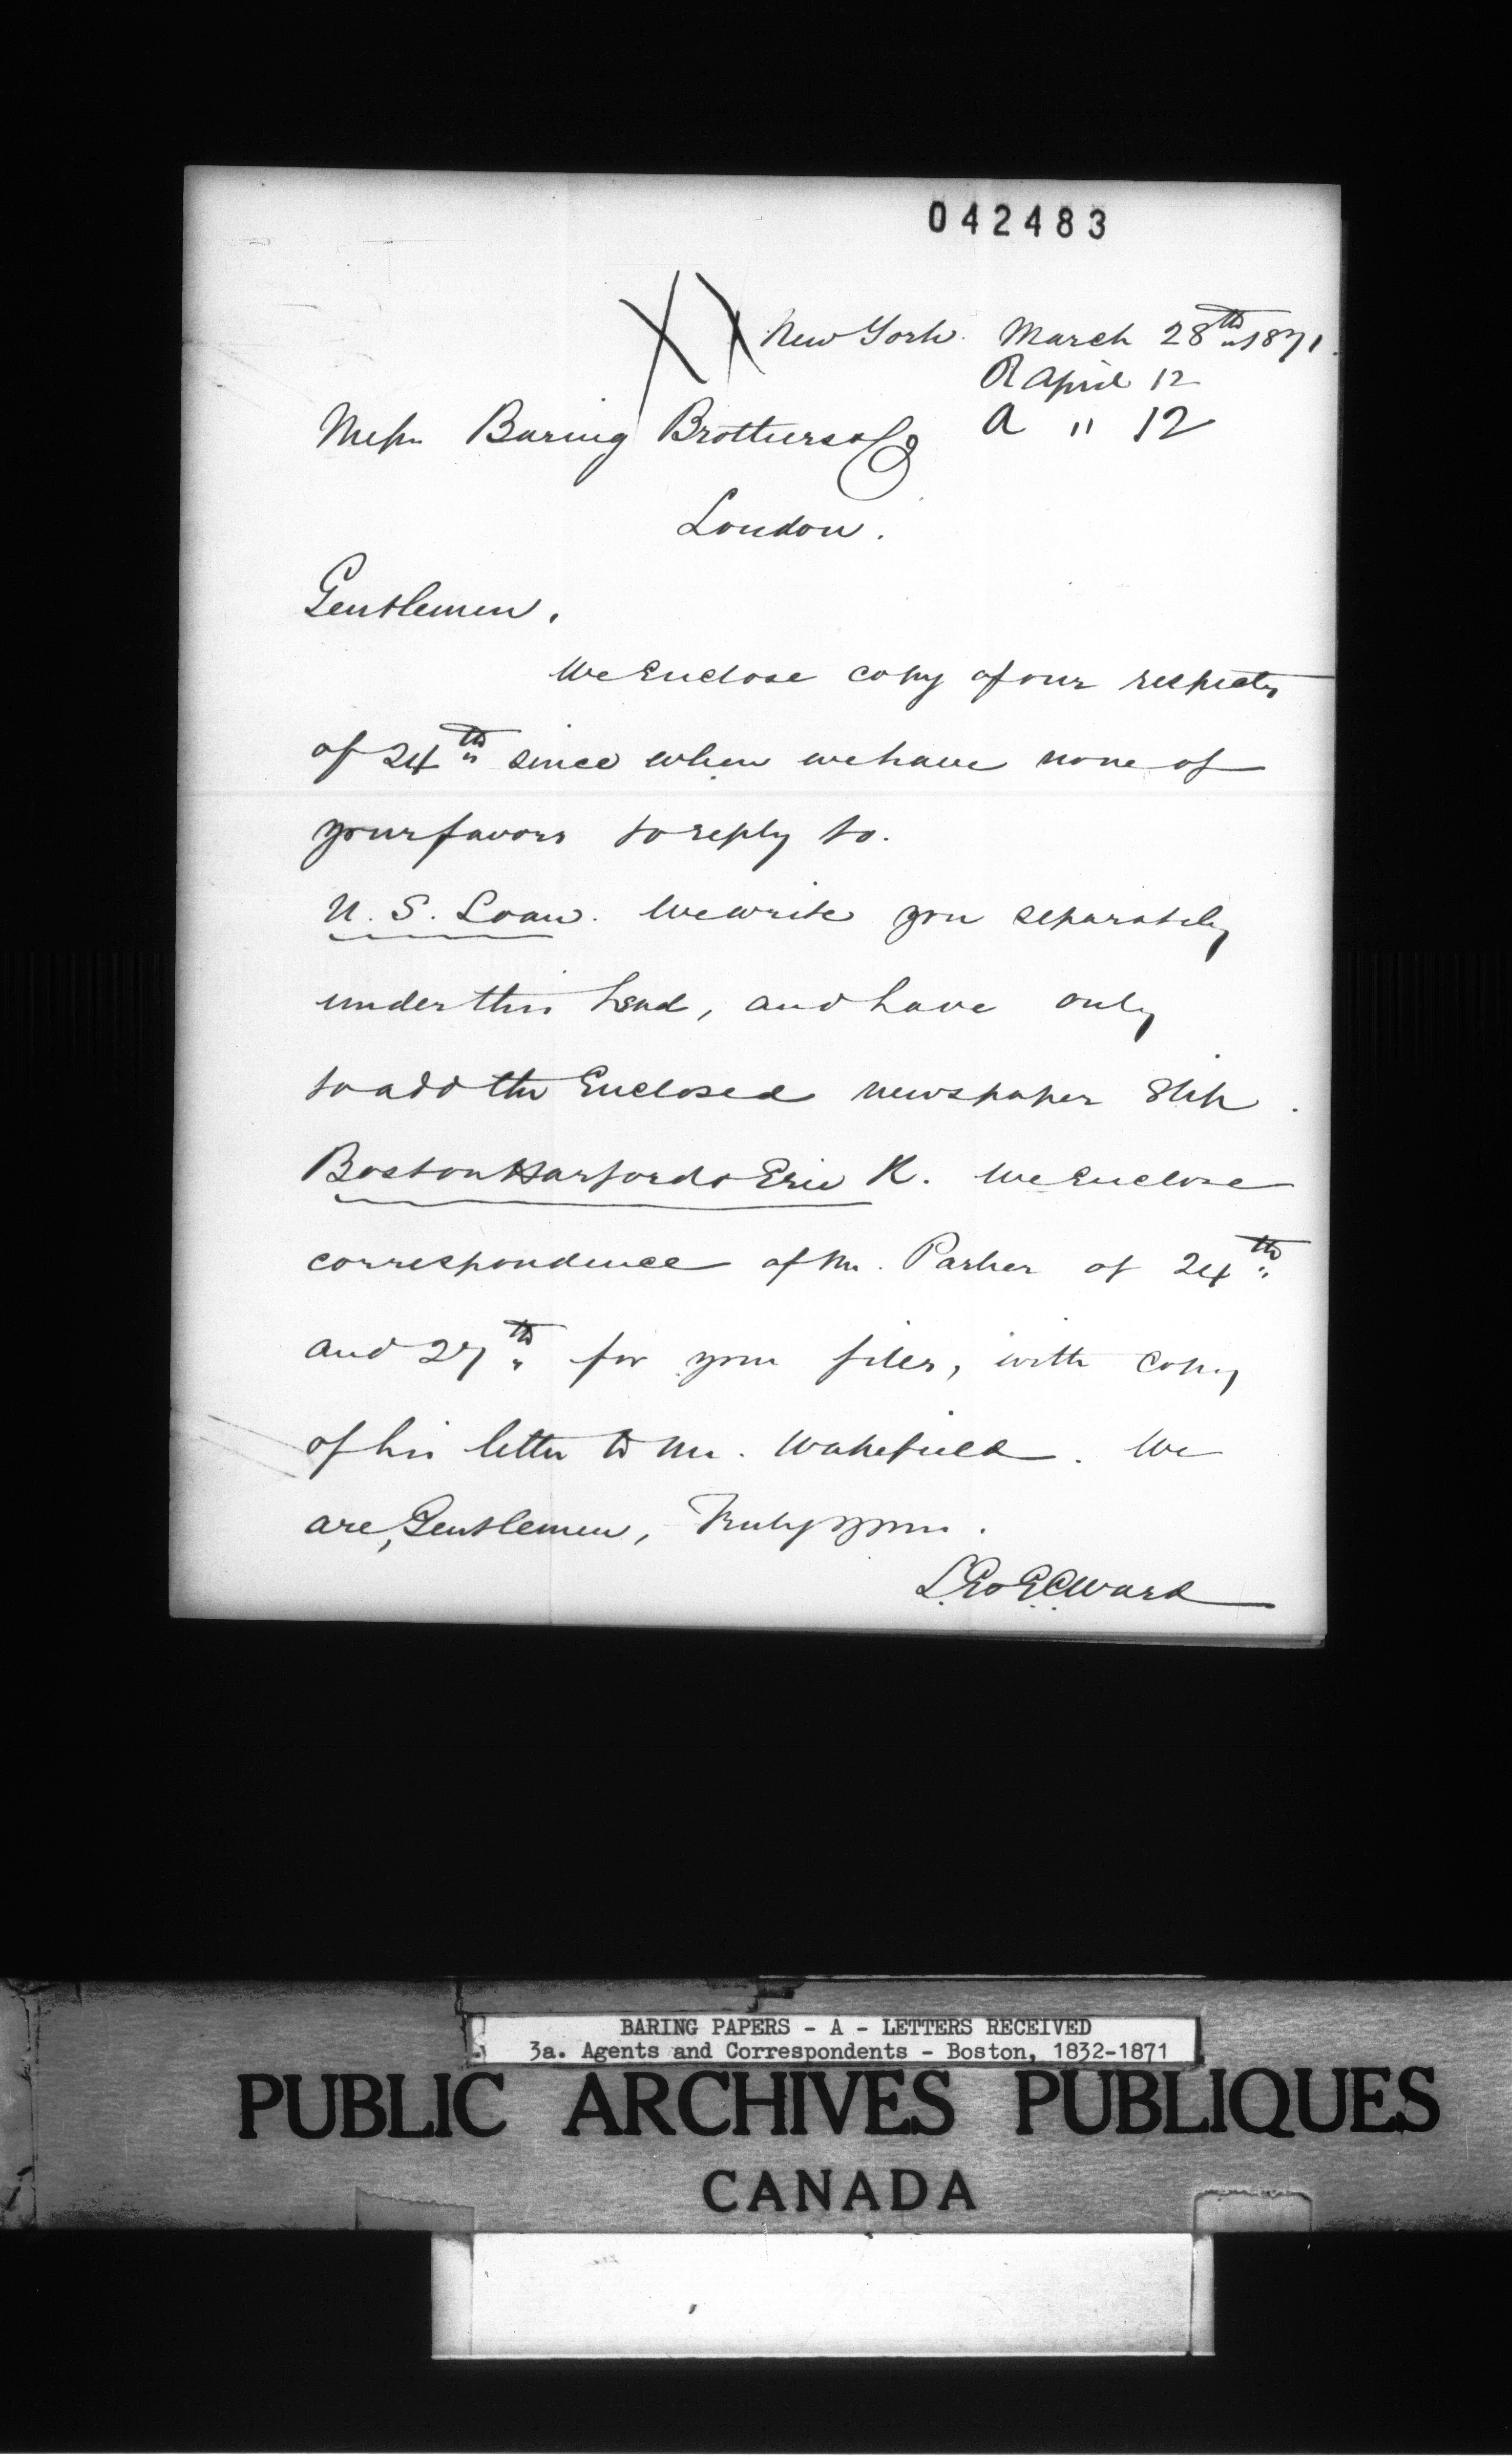 042483
New York. March 28th 1871.
R April 12
A " 12
Messrs Baring Brothers & Co
London.
Gentlemen,
We enclose copy of our respects
of 24th since when we have none of
your favors to reply to.
U. S. Loan. We write you separately
under this head, and have only
to add the Enclosed newspaper slip.
Boston Harford & Erie R. We enclose
correspondence of Mr. Parker of 24th
and 27th for your files, with copy
of his letter to Mr. Wakefield. We
are, Gentlemen, Truly yours.
S. G. & G. C. Ward
BARING PAPERS - A - LETTERS RECEIVED
3a. Agents and Correspondents - Boston, 1832-1871
PUBLIC ARCHIVES PUBLIQUES
CANADA